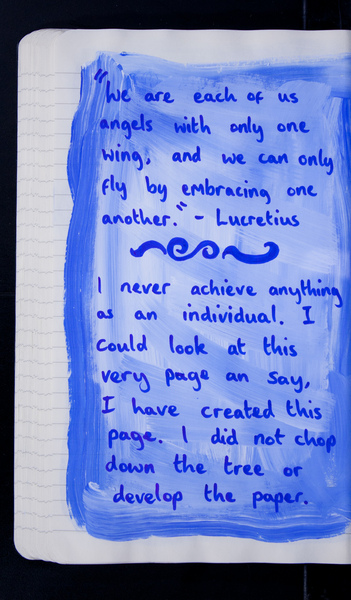 "We are each of us
angels with only one
wing, and we can only
fly by embracing one
another." - Lucretius
I never achieve anything
as an individual. I
could look at this
very page an say,
I have created this
page. I did not chop
down the tree or
develop the paper.